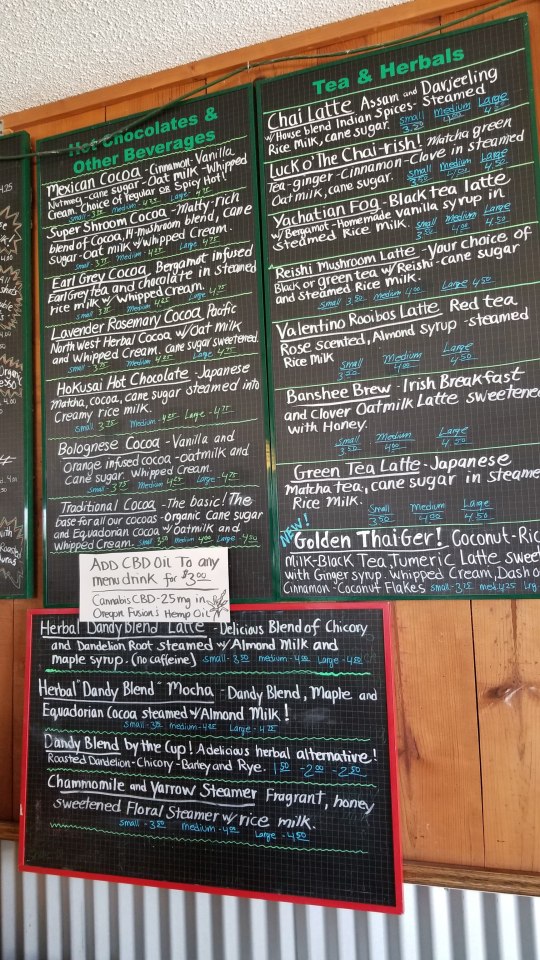 Hot Chocolates &
Other Beverages
Mexican Cocoa - Cinnamon - Vanilla
Nutmeg - cane sugar - Oat milk - Whipped
Cream - Choice of regular or Spicy Hot!
Small - 3.75 Medium - 4.25 Large - 4.75
Super Shroom Cocoa - Malty-rich
blend of Cocoa, 14-mushroom blend, cane
sugar - oat milk w/ Whipped Cream.
Small - 3.75 Medium - 4.25 Large - 4.75
Earl Grey Cocoa Bergamot infused
Earl Grey Tea and chocolate in steamed
rice milk w/ Whipped Cream.
Small 3.75 Medium 4.25 Large 4.75
Lavender Rosemary Cocoa Pacific
North West Herbal Cocoa w/ Oat milk
and Whipped Cream Cane sugar sweetened.
Small - 3.75 Medium - 4.25 Large 4.75
Hokusai Hot Chocolate - Japanese
Matcha, cocoa, cane sugar steamed into
Creamy rice milk.
Small - 3.75 Medium - 4.25 Large - 4.75
Bolognese Cocoa - Vanilla and
Orange infused cocoa - oatmilk and
Cane sugar. Whipped Cream.
Small - 3.75 Medium 4.25 Large 4.75
Traditional Cocoa - The basic! The
base for all our cocoas - organic Cane sugar
and Equadorian cocoa w/ Oatmilk and
Whipped Cream. Small 3.50 Medium 4.00 Large - 4.50
Tea & Herbals
Chai Latte Assam and Darjeeling
w/ House blend Indian Spices - Steamed
Rice Milk, cane sugar. Small Medium Large
4.50
Luck O' The Chai-rish! Matcha green
Tea - ginger - Cinnamon - Clove in steamed
Oat milk, cane sugar. Small Medium Large
4.50
Yachatian Fog - Black tea latte
w/ Bergamot - Homemade Vanilla syrup in
steamed Rice Milk. Small Medium Large
3.50 4.00 4.50
Reishi Mushroom Latte - Your choice of
Black or green tea w/ Reishi - cane sugar
and steamed Rice Milk.
Small 3.50 Medium 4.00 Large 4.50
Valentino Rooibos Latte Red tea
Rose scented, Almond syrup - steamed
Rice Milk Small Medium Large
3.50 4.00 4.50
Banshee Brew - Irish Breakfast
and Clover Oatmilk Latte sweetened
with Honey.
Small Medium Large
3.50 4.00 4.50
Green Tea Latte - Japanese
Matcha tea, cane sugar in steame
Rice Milk. Small Medium Large
3.50 4.00 4.50
NEW!
Golden Thai-Ger! Coconut-Ric
Milk - Black Tea, Tumeric Latte swee
with Ginger syrup. Whipped Cream, Dash o
Cinnamon - Coconut Flakes small - 3.75 med 4.25 Lrg
Add CBD Oil To any
menu drink for $3.00
Cannabis CBD - 25mg in
Oregon Fusion's Hemp Oil
Herbal Dandy Blend Latte - Delicious Blend of Chicory
and Dandelion Root steamed w/ Almond Milk and
maple syrup. (no caffeine) small - 3.50 medium - 4.00 Large - 4.50
Herbal "Dandy Blend" Mocha - Dandy Blend, Maple and
Equadorian Cocoa steamed w/ Almond Milk!
small - 3.75 medium - 4.25 Large - 4.75
Dandy Blend by the Cup! A delicious herbal alternative!
Roasted Dandelion - Chicory - Barley and Rye. 1.50 - 2.00 - 2.50
Chammomile and Yarrow Steamer Fragrant, honey
sweetened Floral Steamer w/ rice milk.
Small - 3.50 medium - 4.00 Large - 4.50